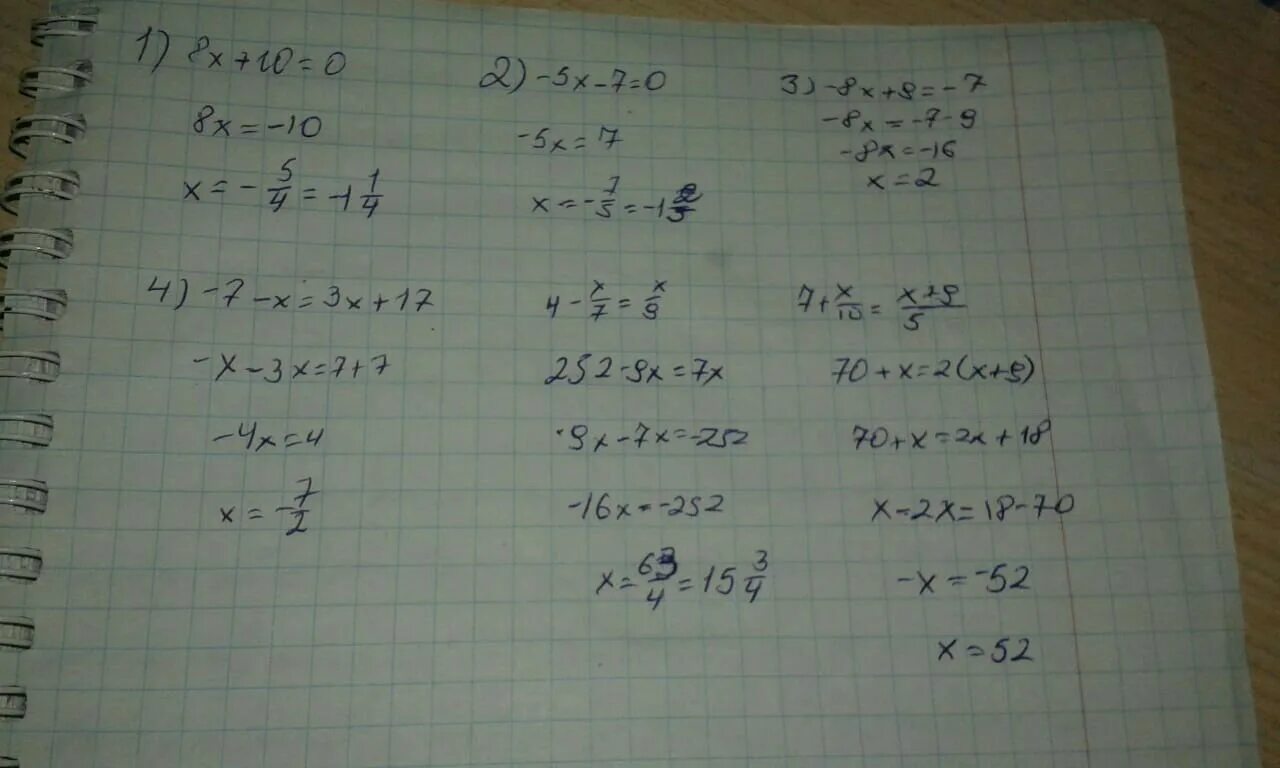 1) 8x+10=0
8x=-10
x=-5/4=-1 1/4
2) -5x-7=0
-5x=7
x=-7/5=-1 2/5
3) -8x+9=-7
-8x=-7-9
-8x=-16
x=2
4) -7-x=3x+17
-x-3x=7+7
-4x=4
x=-7/2
4-x/7=x/9
252-9x=7x
-9x-7x=-252
-16x=-252
x=63/4=15 3/4
7+x/10=x+9/5
70+x=2(x+9)
70+x=2x+18
x-2x=18-70
-x=-52
x=52